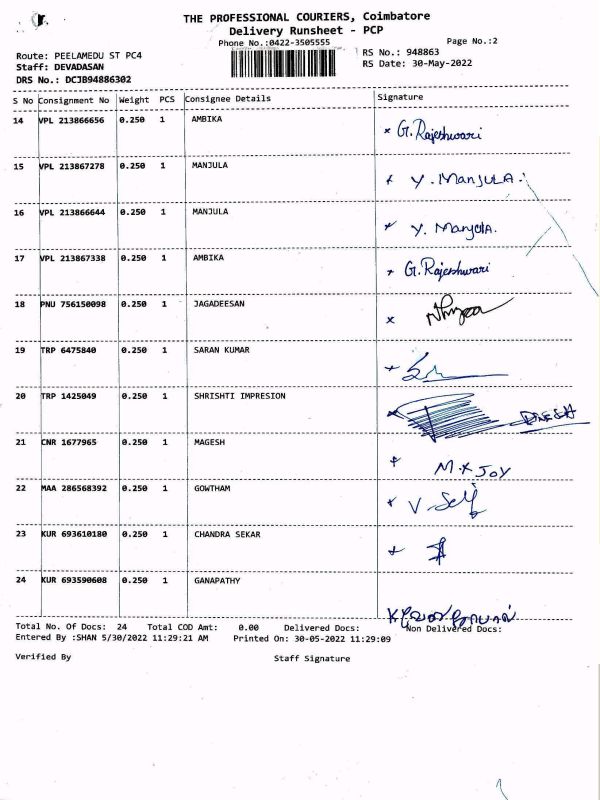 THE PROFESSIONAL COURIERS, Coimbatore
Delivery Runsheet - PCP
Phone No.:0422-3505555 Page No.:2
Route: PEELAMEDU ST PC4 RS No.: 948863
Staff: DEVADASAN RS Date: 30-May-2022
DRS No.: DCJB94886302
S No Consignment No Weight PCS Consignee Details Signature
14 VPL 213866656 0.250 1 AMBIKA x G. Rajeshwari
15 VPL 213867278 0.250 1 MANJULA x Y. MANJULA.
16 VPL 213866644 0.250 1 MANJULA x Y. Manjula.
17 VPL 213867338 0.250 1 AMBIKA x G. Rajeshwari
18 PNU 756150098 0.250 1 JAGADEESAN x
19 TRP 6475840 0.250 1 SARAN KUMAR x
20 TRP 1425049 0.250 1 SHRISHTI IMPRESION x DINESH
21 CNR 1677965 0.250 1 MAGESH x M.K JOY
22 MAA 286568392 0.250 1 GOWTHAM x V. Self
23 KUR 693610180 0.250 1 CHANDRA SEKAR x
24 KUR 693590608 0.250 1 GANAPATHY
Total No. Of Docs: 24 Total COD Amt: 0.00 Delivered Docs: Non Delivered Docs:
Entered By :SHAN 5/30/2022 11:29:21 AM Printed On: 30-05-2022 11:29:09
Verified By Staff Signature